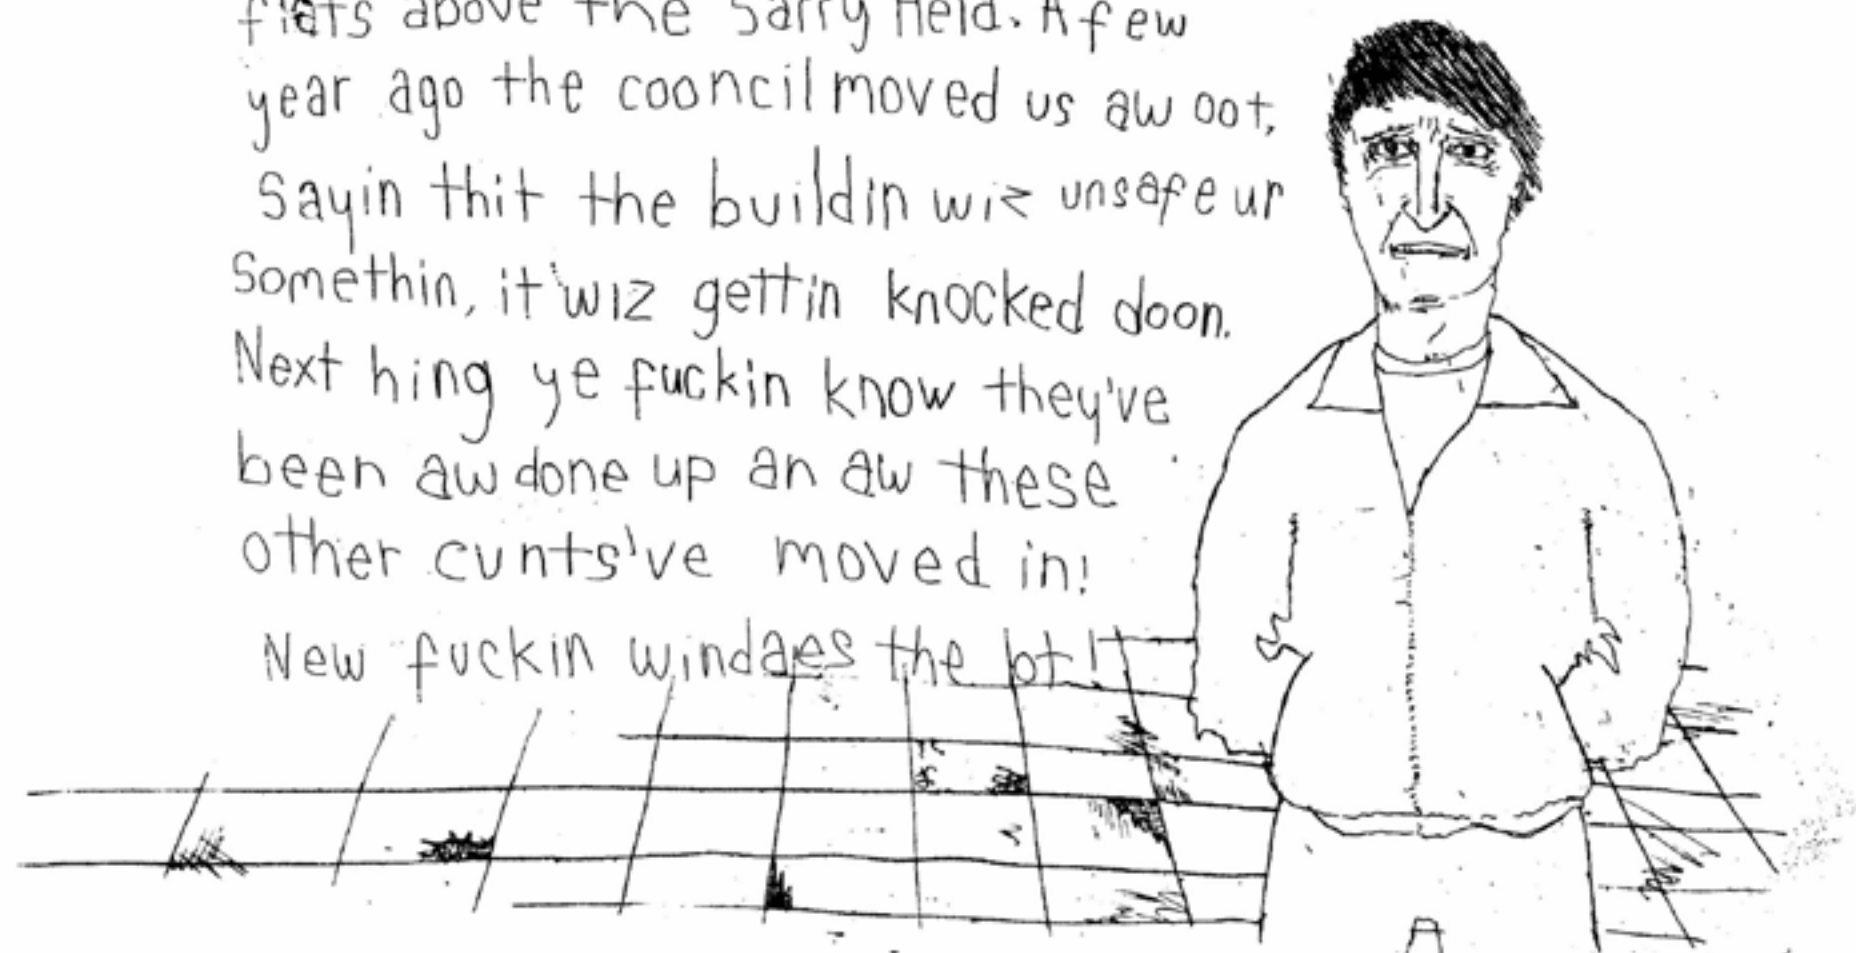 flats above the Sarry Heid. A few
year ago the cooncil moved us aw oot,
Sayin thit the buildin wiz unsafe ur
Somethin, it wiz gettin knocked doon.
Next hing ye fuckin know they've
been aw done up an aw these
other cunts've moved in!
New fuckin windaes the lot!